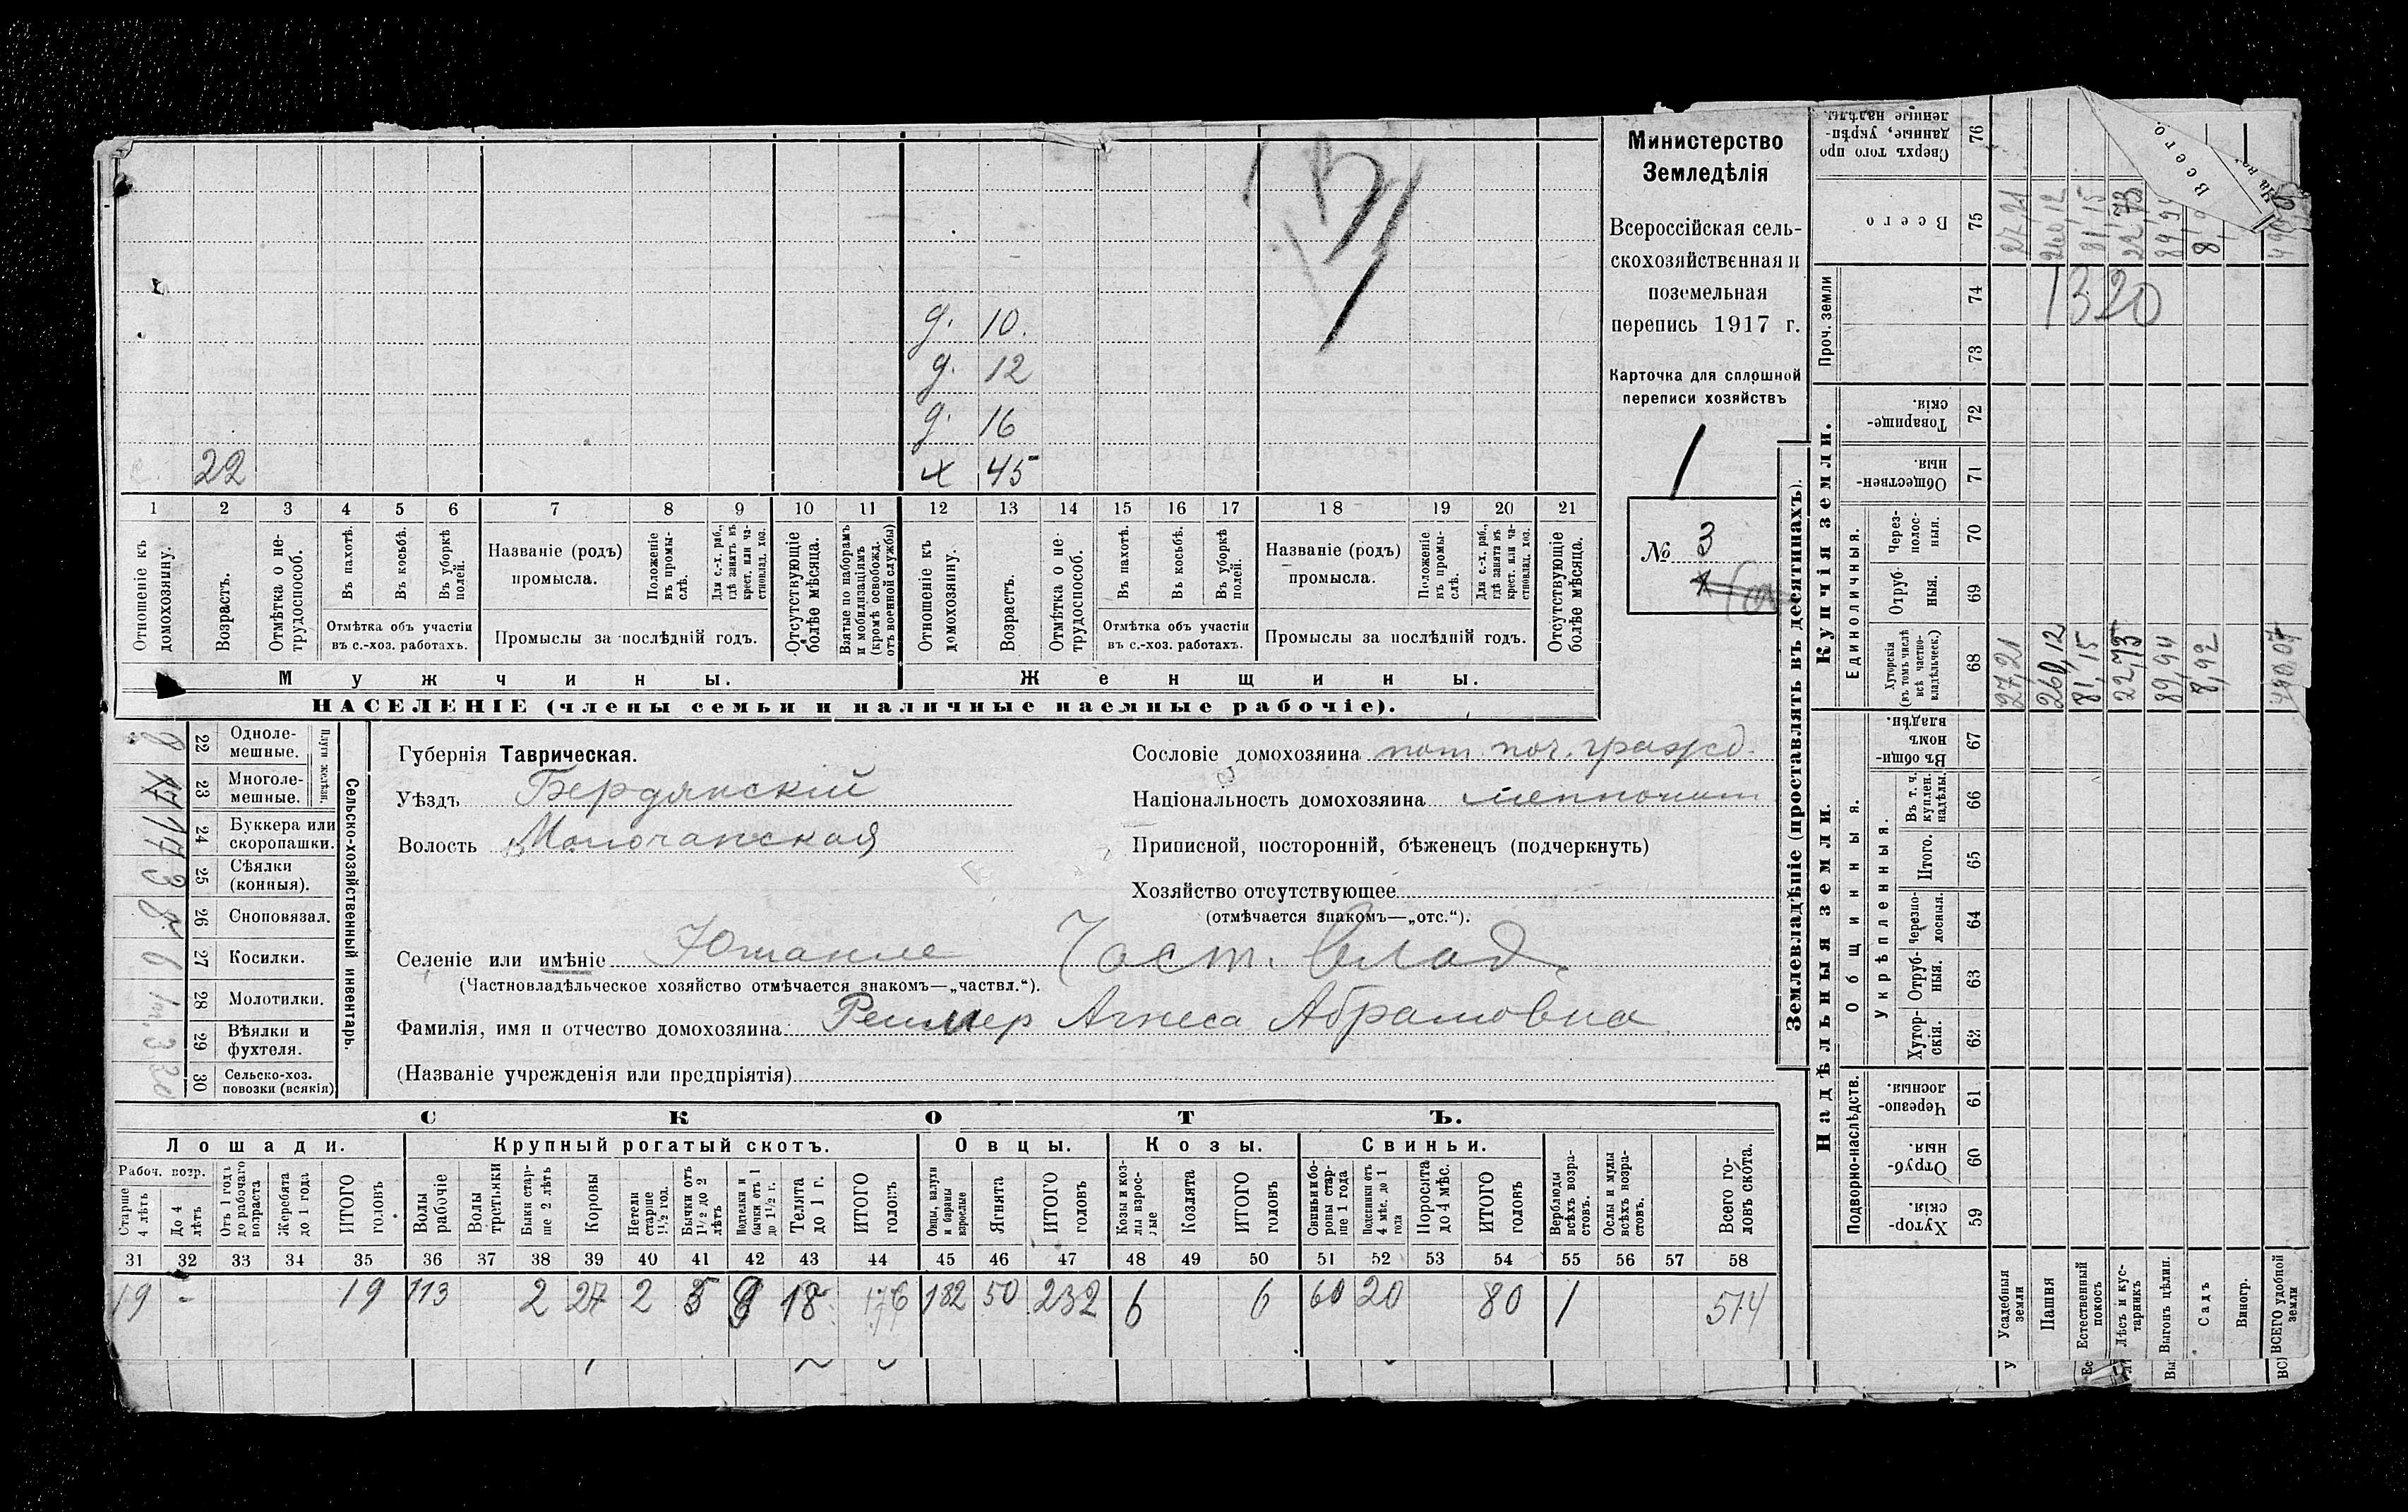 г. 10.
г. 12
г. 16
22 х 45
1 2 3 4 5 6 7 8 9 10 11 12 13 14 15 16 17 18 19 20 21
Отношеніе къ домохозяину.
Возрастъ.
Отмѣтка о не-трудоспособ.
Въ пахотѣ.
Въ косьбѣ.
Въ уборкѣ полей.
Отмѣтка объ участіи
въ с.-хоз. работахъ.
Названіе (родъ)
промысла.
Положеніе въ промы-слѣ.
Для с.-х. раб., гдѣ занятъ въ крест. или ча-стновлад. хоз.
Промыслы за послѣдній годъ.
Отсутствующіе болѣе мѣсяца.
Взятые по наборамъ и мобилизаціямъ (кромѣ освобожд. отъ военной службы)
Отношеніе къ домохозяину.
Возрастъ.
Отмѣтка о не-трудоспособ.
Въ пахотѣ.
Въ косьбѣ.
Въ уборкѣ полей.
Отмѣтка объ участіи
въ с.-хоз. работахъ.
Названіе (родъ)
промысла.
Положеніе въ промы-слѣ.
Для с.-х. раб., гдѣ занята въ крест. или ча-стновлад. хоз.
Промыслы за послѣдній годъ.
Отсутствующіе болѣе мѣсяца.
Мужчины. Женщины.
НАСЕЛЕНІЕ (члены семьи и наличные наемные рабочіе).
Министерство
Земледѣлія
Всероссійская сель-
скохозяйственная и
поземельная
перепись 1917 г.
Карточка для сплошной
переписи хозяйствъ
1
№ 3
Сельско-хозяйственный инвентарь.
Плуги желѣзн.
22 Одноле-мешные.
23 Многоле-мешные.
24 Буккера или скоропашки.
25 Сѣялки (конныя).
26 Сноповязал.
27 Косилки. 6
28 Молотилки.
29 Вѣялки и фухтеля. 3
30 Сельско-хоз. повозки (всякія)
Губернія Таврическая.
Уѣздъ Бердянскій
Волость Молочанская
Сословіе домохозяина пот. поч. гражд.
Національность домохозяина меннонит
Приписной, посторонній, бѣженецъ (подчеркнуть)
Хозяйство отсутствующее
(отмѣчается знакомъ—„отс.“).
Селеніе или имѣніе Юшанле Част. Влад.
(Частновладѣльческое хозяйство отмѣчается знакомъ—„частвл.“).
Фамилія, имя и отчество домохозяина Реимер Агнеса Абрамовна
(Названіе учрежденія или предпріятія)
СКОТЪ.
Лошади. Крупный рогатый скотъ. Овцы. Козы. Свиньи.
Рабоч. возр.
Старше 4 лѣтъ
До 4 лѣтъ
Отъ 1 года до рабочаго возраста
Жеребята до 1 года
ИТОГО головъ
Волы рабочіе
Волы третьяки
Быки стар-ше 2 лѣтъ
Коровы
Нетели старше 1½ год.
Бычки отъ 1½ до 2 лѣтъ
Подтелки и бычки отъ 1 до 1½ г.
Телята до 1 г.
ИТОГО головъ
Овцы, валухи и бараны взрослые
Ягнята
ИТОГО головъ
Козы и коз-лы взрос-лые
Козлята
ИТОГО головъ
Свиньи и бо-ровы стар-ше 1 года
Подсвинки отъ 4 мѣс. до 1 года
Поросята до 4 мѣс.
ИТОГО головъ
Верблюды всѣхъ возра-стовъ.
Ослы и мулы всѣхъ возра-стовъ.
Всего го-ловъ скота.
31 32 33 34 35 36 37 38 39 40 41 42 43 44 45 46 47 48 49 50 51 52 53 54 55 56 57 58
19 - 19 113 2 27 2 18 176 182 50 232 6 6 60 20 80 1 514
Землевладѣніе (проставлять въ десятинахъ).
Надѣльныя земли. Купчія земли. Проч. земли
Подворно-наслѣдств.
Общинныя.
Укрѣпленныя.
Единоличныя.
59 Хутор-скія.
60 Отруб-ныя.
61 Черезпо-лосныя.
62 Хутор-скія.
63 Отруб-ныя.
64 Черезпо-лосныя.
65 Итого.
66 Въ т. ч. куплен. надѣлы.
67 Въ общи-номъ владѣн.
68 Хуторскія (въ томъ числѣ всѣ частно-владѣльческ.)
69 Отруб-ныя.
70 Через-полос-ныя.
71 Обществен-ныя.
72 Товарище-скія.
73
74
75 Всего
76 Сверхъ того про-данные, укрѣп-ленные надѣлы.
Усадебныя земли 27,21 27,21
Пашня 260,12 260,12
Естественный покосъ 81,15 81,15
Лѣсъ и кус-тарникъ 22,73 22,73
Выгонъ цѣлин. 89,94 89,94
Садъ 8,92
Виногр.
ВСЕГО удобной земли
1320
Всего.